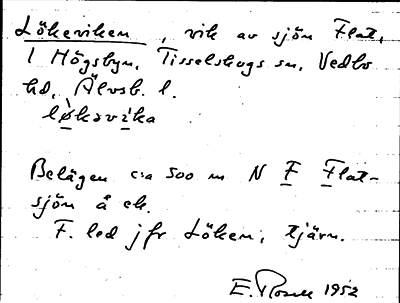 Lökeviken, vik av sjön Flat,
i Högsbyn, Tisselskogs sn, Vedbo
hd, Älvsb. l.
lø̀kəvika
Belägen c:a 500 m N F Flat-
sjön å ek.
F. led jfr Löken, tjärn.
E. Rosell 1952